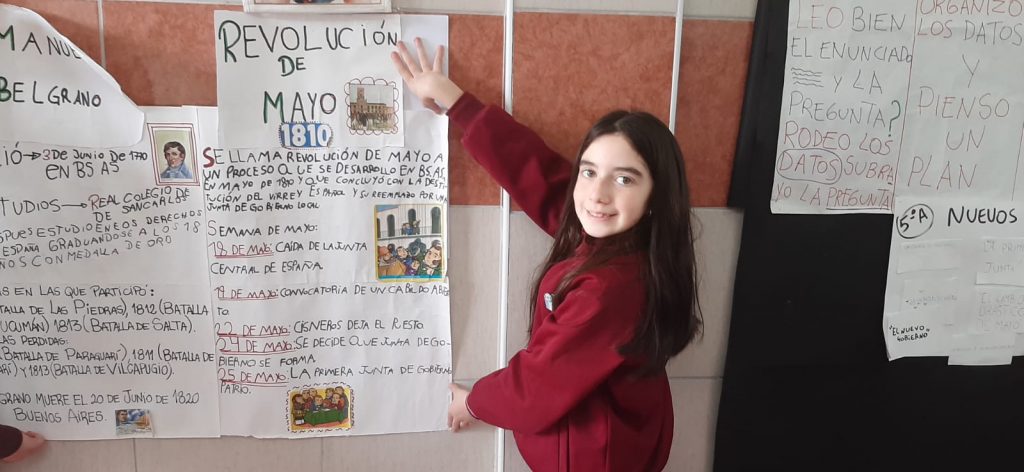 MANUE
BELGRANO
IÓ → 3 DE JUNIO DE 1770
EN BS AS
TUDIOS → REAL COLEGIO
DE SAN CARLOS
PUES ESTUDIÓ EN LOS DERECHOS
ESPAÑA GRADUANDOSE A LOS 18
ÑOS CON MEDALLA DE ORO
AS EN LAS QUE PARTICIPÓ:
TALLA DE LAS PIEDRAS), 1812 (BATALLA
UCUMÁN) 1813 (BATALLA DE SALTA).
LAS PERDIDAS:
(BATALLA DE PARAGUARÍ), 1811 (BATALLA DE
ARÍ) Y 1813 (BATALLA DE VILCAPUGIO).
GRANO MUERE EL 20 DE JUNIO DE 1820
BUENOS AIRES.
REVOLUCIÓN
DE
MAYO
1810
SE LLAMA REVOLUCIÓN DE MAYO A
UN PROCESO QUE SE DESARROLLÓ EN BS AS,
EN MAYO DE 1810 Y QUE CONCLUYÓ CON LA DESTI
TUCIÓN DEL VIRREY ESPAÑOL Y SU REEMPLAZO POR UNA
JUNTA DE GOBIERNO LOCAL
SEMANA DE MAYO:
18 DE MAYO: CAÍDA DE LA JUNTA
CENTRAL DE ESPAÑA
19 DE MAYO: CONVOCATORIA DE UN CABILDO ABIER
TO.
22 DE MAYO: CISNEROS DEJA EL
24 DE MAYO: SE DECIDE QUE JUNTA DE GO-
BIERNO SE FORMA
25 DE MAYO: LA PRIMERA JUNTA DE GOBIERNO
PATRIO.
LEO BIEN
EL ENUNCIADO
Y LA
PREGUNTA?
RODEO LOS
DATOS SUBRA
YO LA PREGUNTA
ORGANIZO
LOS DATOS
Y
PIENSO
UN
PLAN
5°A NUEVOS
LA PRIM
JUNTA
"EL NUEVO
GOBIERNO"